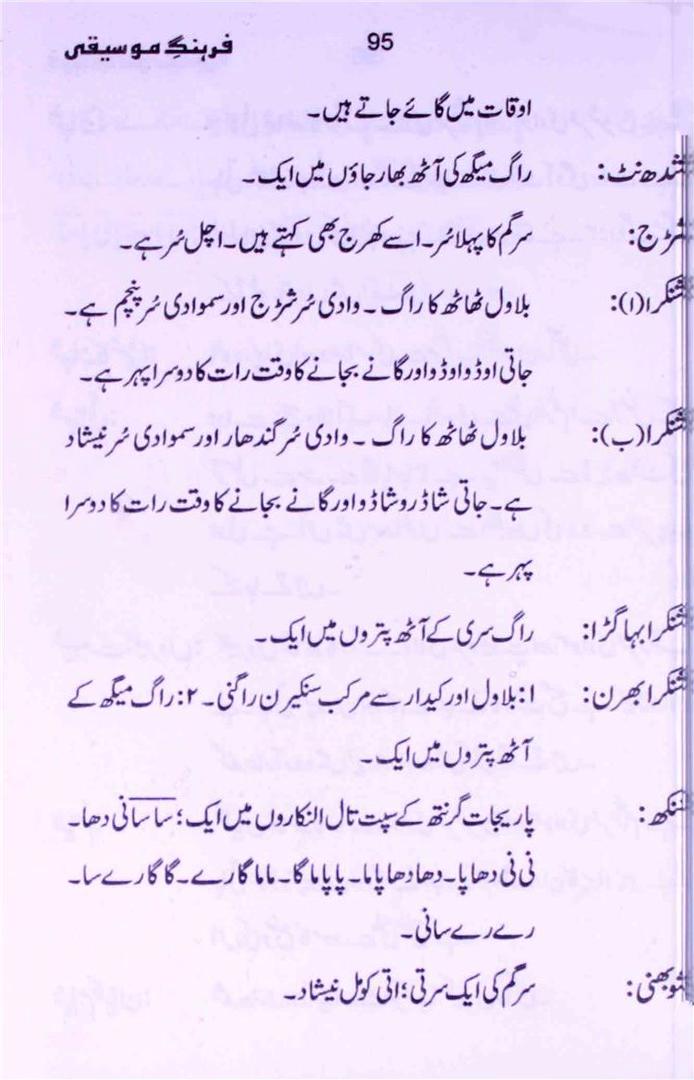 فرہنگِ موسیقی 95
اوقات میں گائے جاتے ہیں۔
شدھ نٹ: راگ میگھ کی آٹھ بھارجاؤں میں ایک۔
شڑج: سرگم کا پہلا سُر۔ اسے کھرج بھی کہتے ہیں۔ اچل سُر ہے۔
شنکرا (ا): بلاول ٹھاٹھ کا راگ۔ وادی سُر شڑج اور سموادی سُر پنچم ہے۔
جاتی اوڈو اوڈو اور گانے بجانے کا وقت رات کا دوسرا پہر ہے۔
شنکرا (ب): بلاول ٹھاٹھ کا راگ۔ وادی سُر گندھار اور سموادی سُر نیشاد
ہے۔ جاتی شاڈرو شاڈو اور گانے بجانے کا وقت رات کا دوسرا
پہر ہے۔
شنکرا بہاگڑا: راگ سری کے آٹھ پتروں میں ایک۔
شنکرا بھرن: ۱: بلاول اور کیدار سے مرکب سنکیرن راگنی۔ ۲: راگ میگھ کے
آٹھ پتروں میں ایک۔
شنکھ: پاریجات گرنتھ کے سپت تال النکاروں میں ایک؛ سا سا نی دھا۔
نی نی دھا پا۔ دھا دھا پا پا۔ پا پا ما گا۔ ما ما گا رے۔ گا گا رے سا۔
رے رے سا نی۔
شوبھنی: سرگم کی ایک سرتی؛ اتی کومل نیشاد۔